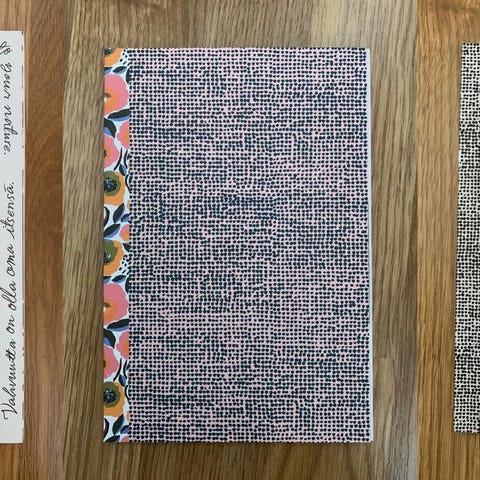 your nature.
Vahvuutta on olla oma itsensä.